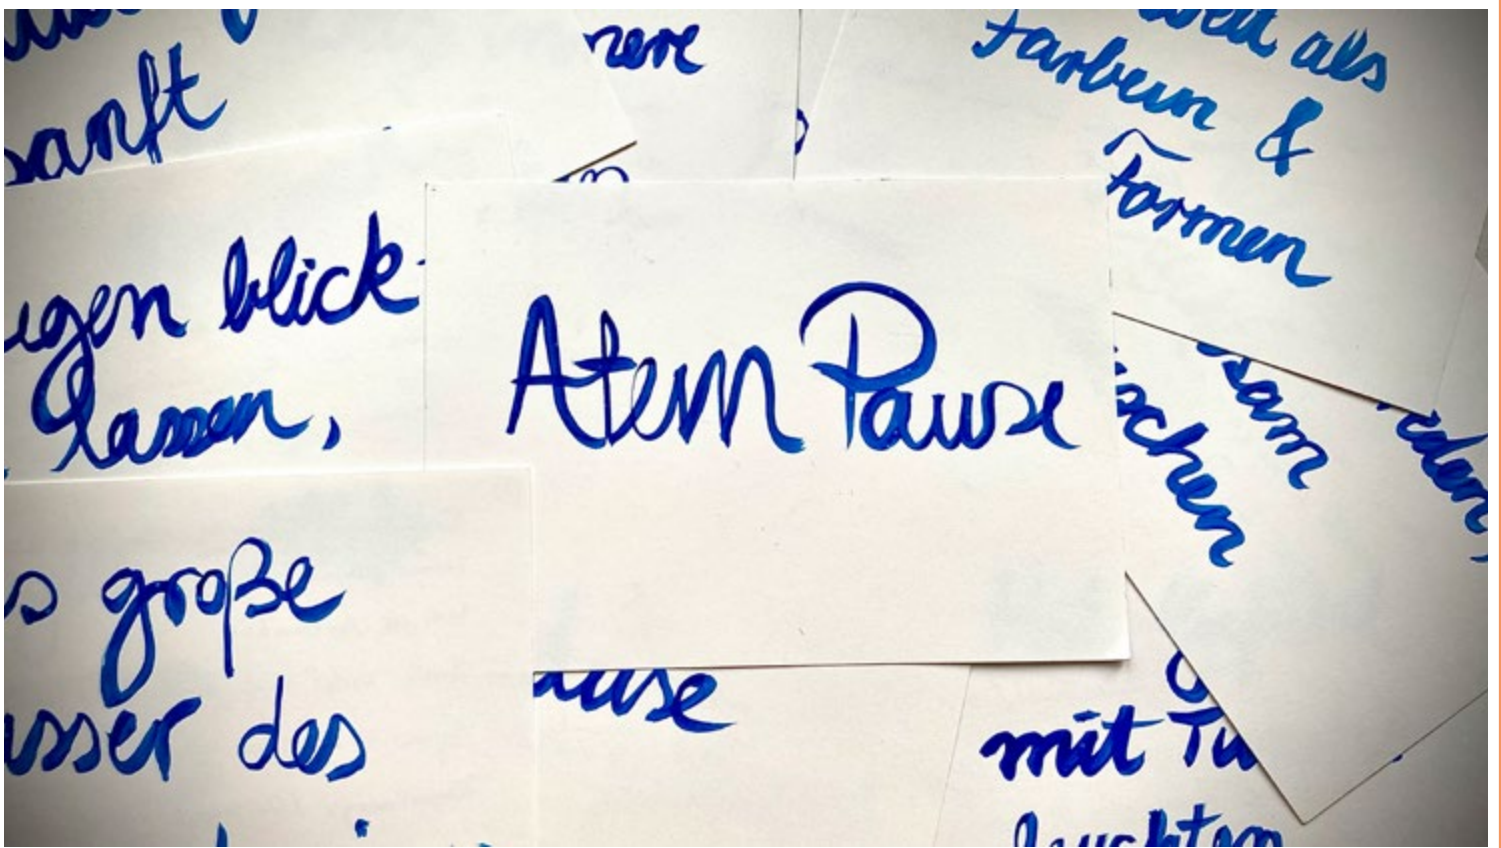 sanft
nere
als
Farben &
Formen
blick-
lassen,
Atem Pause
schen
sam
eden,
s große
asser des
ause
mit Tu
leuchten